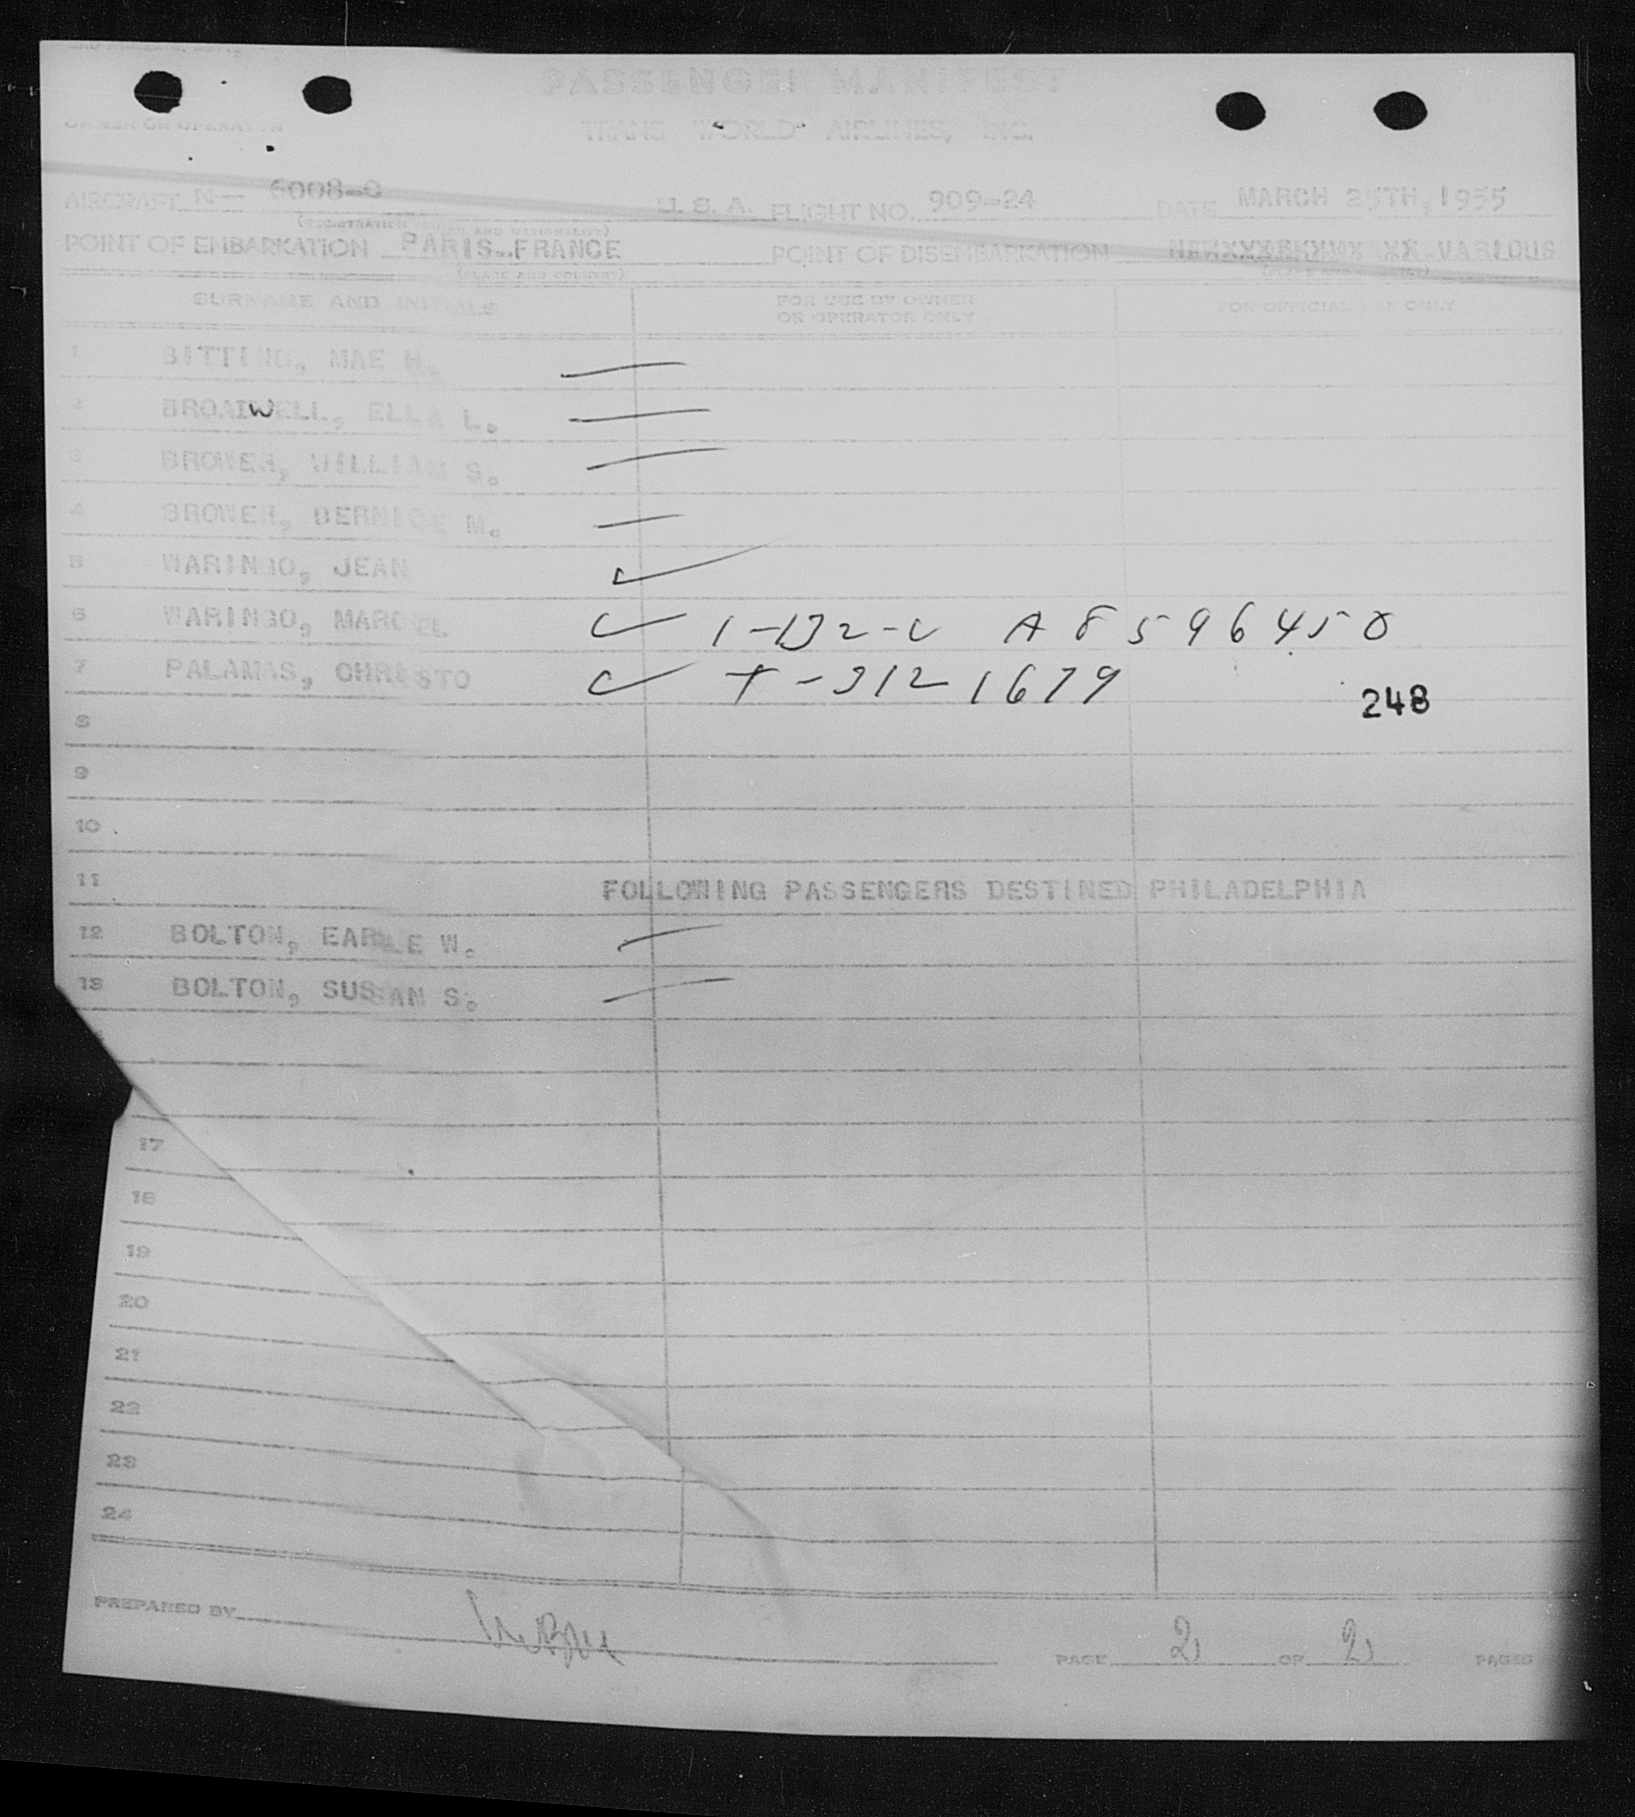 PASSENGER MANIFEST
OWNER OR OPERATOR TRANS WORLD AIRLINES, INC.
AIRCRAFT N- 6008-C U. S. A. FLIGHT NO. 909-24 DATE MARCH 25TH, 1955
(REGISTRATION MARKS AND NATIONALITY)
POINT OF EMBARKATION PARIS-FRANCE POINT OF DISEMBARKATION VARIOUS
(PLACE AND COUNTRY)
SURNAME AND INITIALS FOR USE BY OWNER OR OPERATOR ONLY FOR OFFICIAL USE ONLY
1 BITTING, MAE H.
2 BROADWELL, ELLA L.
3 BROWER, WILLIAM S.
4 BROWER, BERNICE M.
5 WARINGO, JEAN
6 WARINGO, MARCEL 1-B2-C A8596458
7 PALAMAS, CHRISTO T-3121679
248
8
9
10
11 FOLLOWING PASSENGERS DESTINED PHILADELPHIA
12 BOLTON, EARLE W.
13 BOLTON, SUSAN S.
17
18
19
20
21
22
23
24
PREPARED BY
PAGE 2 OF 2 PAGES